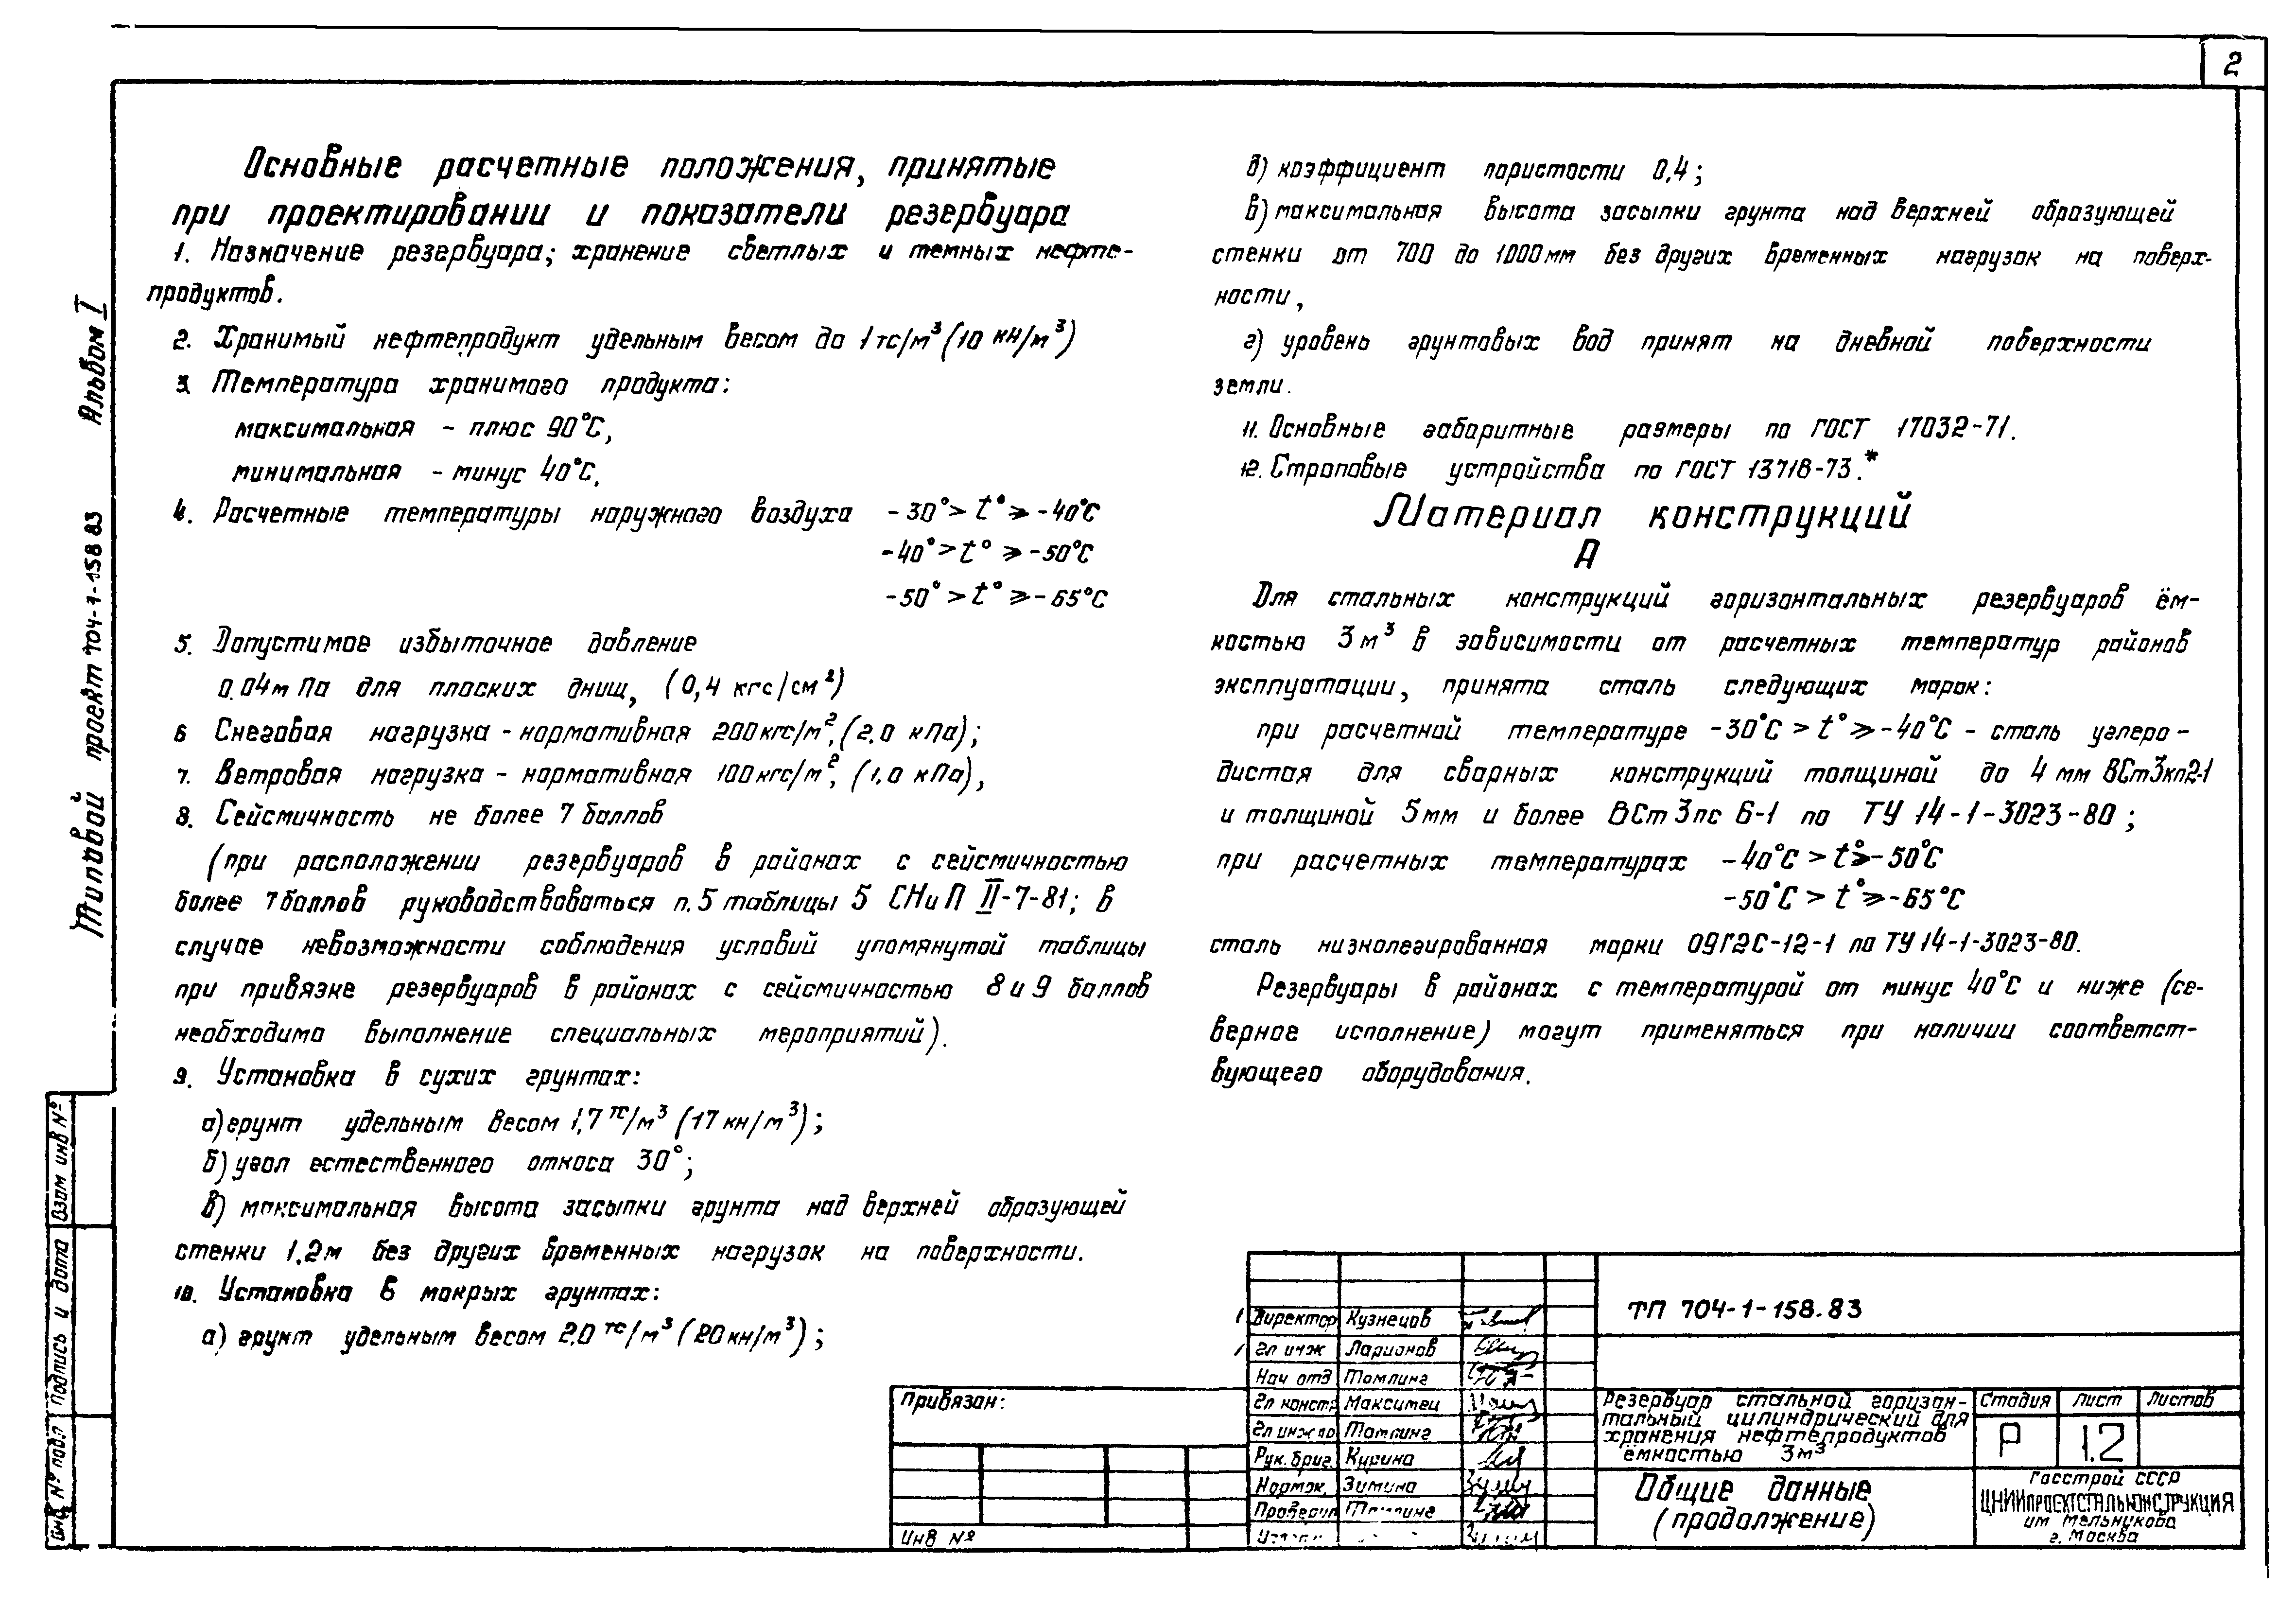 2
Основные расчетные положения, принятые
при проектировании и показатели резервуара
1. Назначение резервуара; хранение светлых и темных нефте-
продуктов.
2. Хранимый нефтепродукт удельным весом до 1 тс/м³ (10 кн/м³)
3. Температура хранимого продукта:
максимальная - плюс 90°С,
минимальная - минус 40°С.
4. Расчетные температуры наружного воздуха -30° > t° ⩾ -40°С
-40° > t° ⩾ -50°С
-50° > t° ⩾ -65°С
5. Допустимое избыточное давление
0.04м Па для плоских днищ, (0,4 кгс/см²)
6 Снеговая нагрузка - нормативная 200кгс/м², (2,0 кПа);
7. Ветровая нагрузка - нормативная 100кгс/м², (1,0 кПа),
8. Сейсмичность не более 7 баллов
(при расположении резервуаров в районах с сейсмичностью
более 7 баллов руководствоваться п.5 таблицы 5 СНиП II-7-81; в
случае невозможности соблюдения условий упомянутой таблицы
при привязке резервуаров в районах с сейсмичностью 8 и 9 баллов
необходимо выполнение специальных мероприятий).
9. Установка в сухих грунтах:
а) грунт удельным весом 1,7 тс/м³ (17 кн/м³);
б) угол естественного откоса 30°;
в) максимальная высота засыпки грунта над верхней образующей
стенки 1,2м без других временных нагрузок на поверхности.
10. Установка в мокрых грунтах:
а) грунт удельным весом 2,0 тс/м³ (20кн/м³);
б) коэффициент пористости 0,4;
в) максимальная высота засыпки грунта над верхней образующей
стенки от 700 до 1000мм без других временных нагрузок на поверх-
ности,
г) уровень грунтовых вод принят на дневной поверхности
земли.
11. Основные габаритные размеры по ГОСТ 17032-71.
12. Строповые устройства по ГОСТ 13716-73.*
Материал конструкций
А
Для стальных конструкций горизонтальных резервуаров ём-
костью 3м³ в зависимости от расчетных температур районов
эксплуатации, принята сталь следующих марок:
при расчетной температуре -30°С > t° ⩾ -40°С - сталь углеро-
дистая для сварных конструкций толщиной до 4 мм ВСт3кп2-1
и толщиной 5мм и более ВСт 3пс 6-1 по ТУ 14-1-3023-80;
при расчетных температурах -40°С > t° ⩾ -50°С
-50°С > t° ⩾ -65°С
сталь низколегированная марки 09Г2С-12-1 по ТУ 14-1-3023-80.
Резервуары в районах с температурой от минус 40°С и ниже (се-
верное исполнение) могут применяться при наличии соответст-
вующего оборудования.
Типовой проект 704-1-158 83 Альбом I
Инв № подл Подпись и дата Взам инв №
Привязан:
Инв №
Директор Кузнецов
Гл инж Ларионов
Нач отд Томлинг
Гл констр Максимец
Гл инж пр Томлинг
Рук. бриг. Курина
Нормок. Зимина
Проверил Томлинг
ТП 704-1-158.83
Резервуар стальной горизон-
тальный цилиндрический для
хранения нефтепродуктов
ёмкостью 3м³
Стадия Лист Листов
Р 1.2
Общие данные
(продолжение)
Госстрой СССР
ЦНИИПРОЕКТСТАЛЬКОНСТРУКЦИЯ
им Мельникова
г. Москва